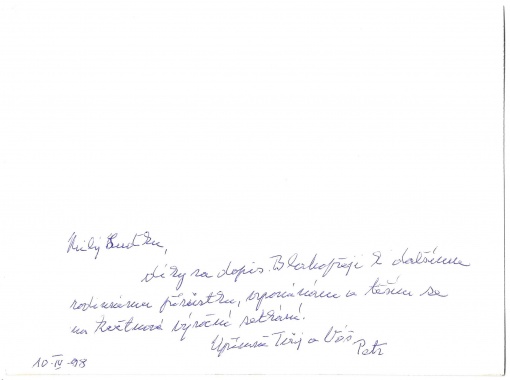 Milý Luďku,
díky za dopis. Blahopřeji k dalšímu
rodinnému přírůstku, vzpomínám a těším se
na květnové výroční setkání.
Upřímně Tvůj a Váš Petr
10-IV-98